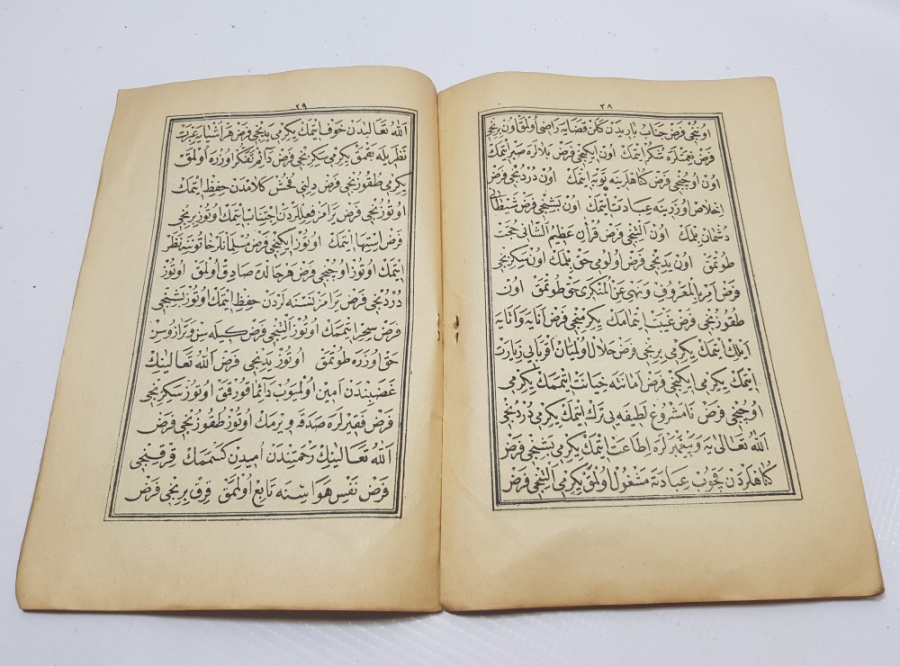 ٢٨
اونجی فرض جناب باریدن کلن قضایه راضی اولمق اون برنجی
فرض نعمتلره شکر ایتمك اون ایکنجی فرض بلالره صبر ایتمك
اون اوچنجی فرض کناهلرینه توبه ایتمك اون دردنجی فرض
اخلاص اوزرینه عبادت ایتمك اون بشنجی فرض شیطانی
دشمان بلمك اون التنجی فرض قرآن عظیم الشانی حجت
طوتمق اون یدنجی فرض اولومی حق بلمك اون سکزنجی
فرض امر بالمعروف و نهی عن المنکری حق طوتمق اون
طقوزنجی فرض غیبت ایتمامك یکرمنجی فرض انایه و اتایه
ایلك ایتمك یکرمی برنجی فرض حلال اولمیان اقربایی زیارت
ایتمك یکرمی ایکنجی فرض امانته خیانت ایتممك یکرمی
اوچنجی فرض نامشروع لطیفه یی ترك ایتمك یکرمی دردنجی
الله تعالی یه و پیغمبرلره اطاعت ایتمك یکرمی بشنجی فرض
کناهلردن قچوب عبادته مشغول اولمق یکرمی التنجی فرض
٢٩
الله تعالیدن خوف ایتمك یکرمی یدنجی فرض هر اشیایه عبرت
نظریله بقمق یکرمی سکزنجی فرض دائم تفکر اوزره اولمق
یکرمی طقوزنجی فرض دلنی فحش کلامدن حفظ ایتمك
اوتوزنجی فرض یرامز فعللردن اجتناب ایتمك اوتوز برنجی
فرض استهزا ایتمك اوتوز ایکنجی فرض مسلمانلر خاتوننه نظر
ایتمك اوتوز اوچنجی فرض هر حالده صادق اولمق اوتوز
دردنجی فرض یرامز نسنه لردن حفظ ایتمك اوتوز بشنجی
فرض سحر ایتممك اوتوز التنجی فرض کیله سن و ترازوسن
حق اوزره طوتمق اوتوز یدنجی فرض الله تعالینك
غضبندن امین اولمیوب دائما قورقمق اوتوز سکزنجی
فرض فقیرلره صدقه ویرمك اوتوز طقوزنجی فرض
الله تعالینك رحمتندن امیدن کسممك قرقنجی
فرض نفس هواسنه تابع اولمامق قرق برنجی فرض